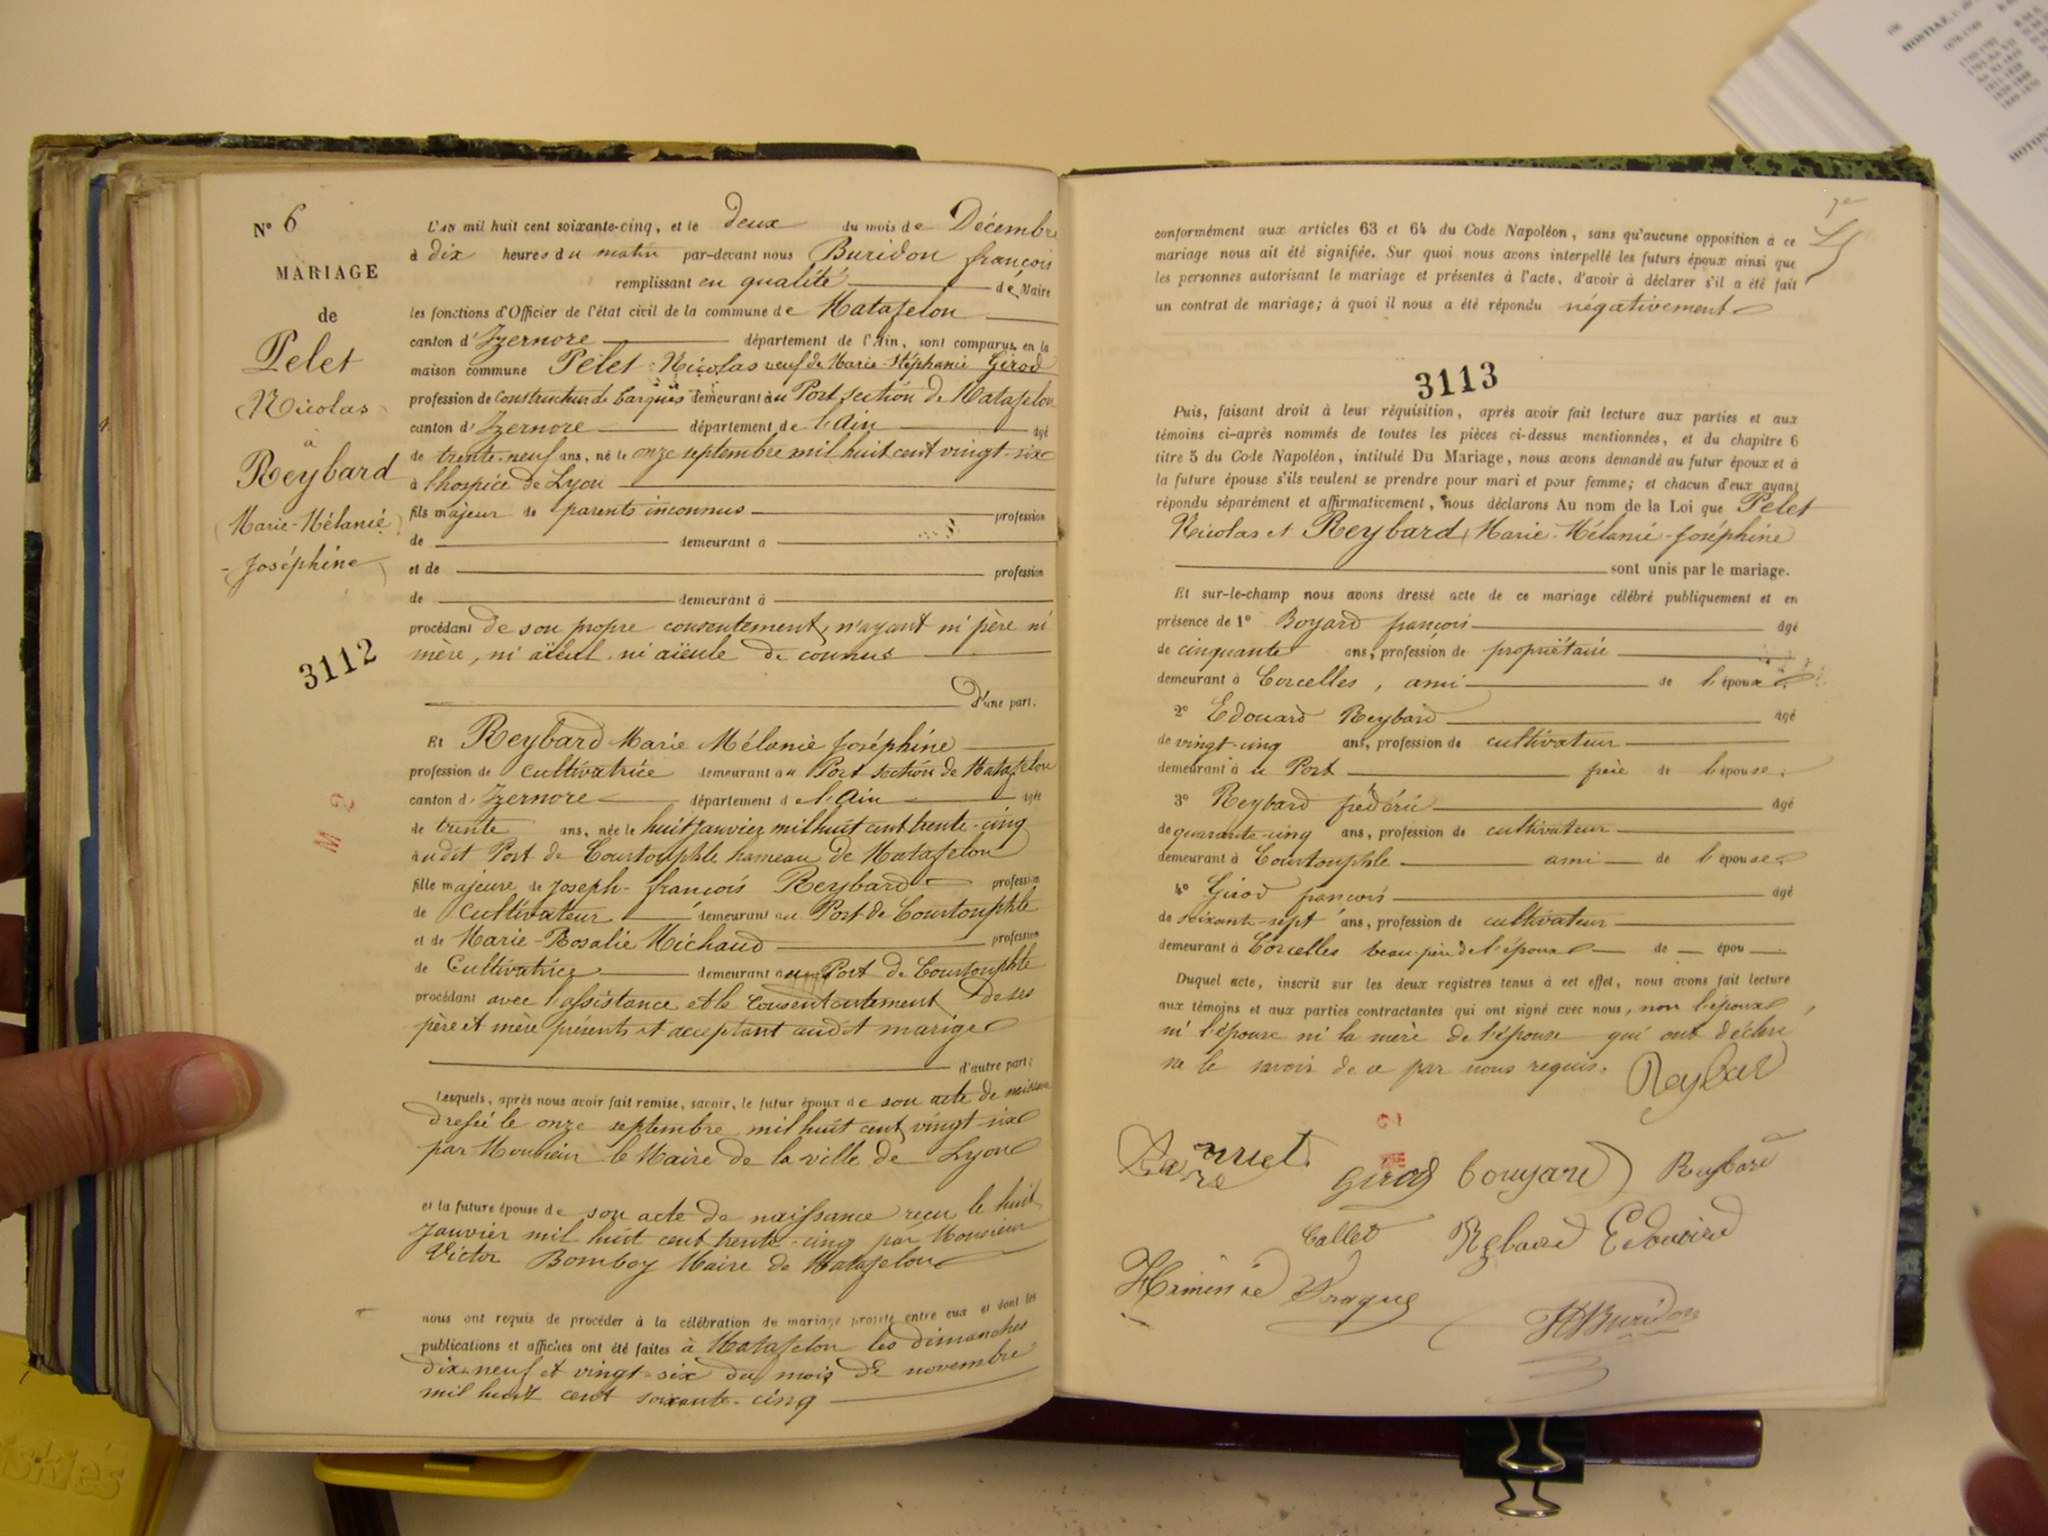 N° 6
MARIAGE
de
Pelet
Nicolas
à
Reybard
Marie-Mélanie
Joséphine
3112
L'AN mil huit cent soixante-cinq, et le deux du mois de Décembre
à dix heures du matin par-devant nous Buridon françois
remplissant en qualité de Maire
les fonctions d'Officier de l'état civil de la commune de Matafelon
canton d'Izernore département de l'Ain, sont comparus en la
maison commune Pelet Nicolas veuf de Marie-Stéphanie Girod
profession de constructeur de barques demeurant au Port section de Matafelon
canton d'Izernore département de l'Ain âgé
de trente-neuf ans, né le onze septembre mil huit cent vingt-six
à l'hospice de Lyon
fils majeur de parents inconnus profession
de demeurant à
et de profession
de demeurant à
procédant de son propre consentement, n'ayant ni père ni
mère, ni aïeul, ni aïeule de connus
d'une part.
Et Reybard Marie Mélanie Joséphine
profession de cultivatrice demeurant au Port section de Matafelon
canton d'Izernore département de l'Ain âgée
de trente ans, née le huit Janvier mil huit cent trente-cinq
audit Port de Courtouphle hameau de Matafelon
fille majeure de Joseph-françois Reybard profession
de Cultivateur demeurant au Port de Courtouphle
et de Marie-Rosalie Michaud profession
de Cultivatrice demeurant au Port de Courtouphle
procédant avec l'assistance et le consentement de ses
père et mère présents et acceptant audit mariage
d'autre part;
Lesquels, après nous avoir fait remise, savoir, le futur époux de son acte de naissance
dressé le onze septembre mil huit cent vingt-six
par Monsieur le Maire de la ville de Lyon
et la future épouse de son acte de naissance reçu le huit
Janvier mil huit cent trente-cinq par Monsieur
Victor Bomboy Maire de Matafelon
nous ont requis de procéder à la célébration du mariage projeté entre eux et dont les
publications et affiches ont été faites à Matafelon les dimanches
dix-neuf et vingt-six du mois de novembre
mil huit cent soixante-cinq
conformément aux articles 63 et 64 du Code Napoléon, sans qu'aucune opposition à ce
mariage nous ait été signifiée. Sur quoi nous avons interpellé les futurs époux ainsi que
les personnes autorisant le mariage et présentes à l'acte, d'avoir à déclarer s'il a été fait
un contrat de mariage; à quoi il nous a été répondu négativement
3113
Puis, faisant droit à leur réquisition, après avoir fait lecture aux parties et aux
témoins ci-après nommés de toutes les pièces ci-dessus mentionnées, et du chapitre 6
titre 5 du Code Napoléon, intitulé Du Mariage, nous avons demandé au futur époux et à
la future épouse s'ils veulent se prendre pour mari et pour femme; et chacun d'eux ayant
répondu séparément et affirmativement, nous déclarons Au nom de la Loi que Pelet
Nicolas et Reybard Marie-Mélanie-Joséphine
sont unis par le mariage.
Et sur-le-champ nous avons dressé acte de ce mariage célébré publiquement et en
présence de 1° Boyard françois âgé
de cinquante ans, profession de propriétaire
demeurant à Corcelles, ami de l'époux
2° Edouard Reybard âgé
de vingt-cinq ans, profession de cultivateur
demeurant au Port frère de l'épouse
3° Reybard frédéric âgé
de quarante-cinq ans, profession de cultivateur
demeurant à Courtouphle ami de l'épouse
4° Girod françois âgé
de soixante-sept ans, profession de cultivateur
demeurant à Corcelles beau-père de l'époux de épou
Duquel acte, inscrit sur les deux registres tenus à cet effet, nous avons fait lecture
aux témoins et aux parties contractantes qui ont signé avec nous, non l'époux,
ni l'épouse ni la mère de l'épouse qui ont déclaré
ne le savoir de ce par nous requis.
Reybard
Girod bouyard Reybard
Callet Reybard Edouard
Buridon
HOSTIAZ